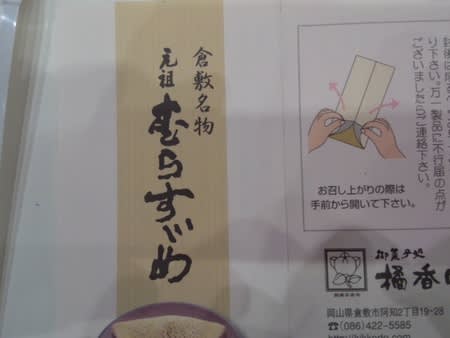 倉敷名物
元祖
むらすゞめ
り下さい。万一製品に不行届の点が
ございましたらご連絡下さい。
お召し上がりの際は
手前から開いて下さい。
御菓子処
橘香
岡山県倉敷市阿知2丁目19-28
☎(086)422-5585